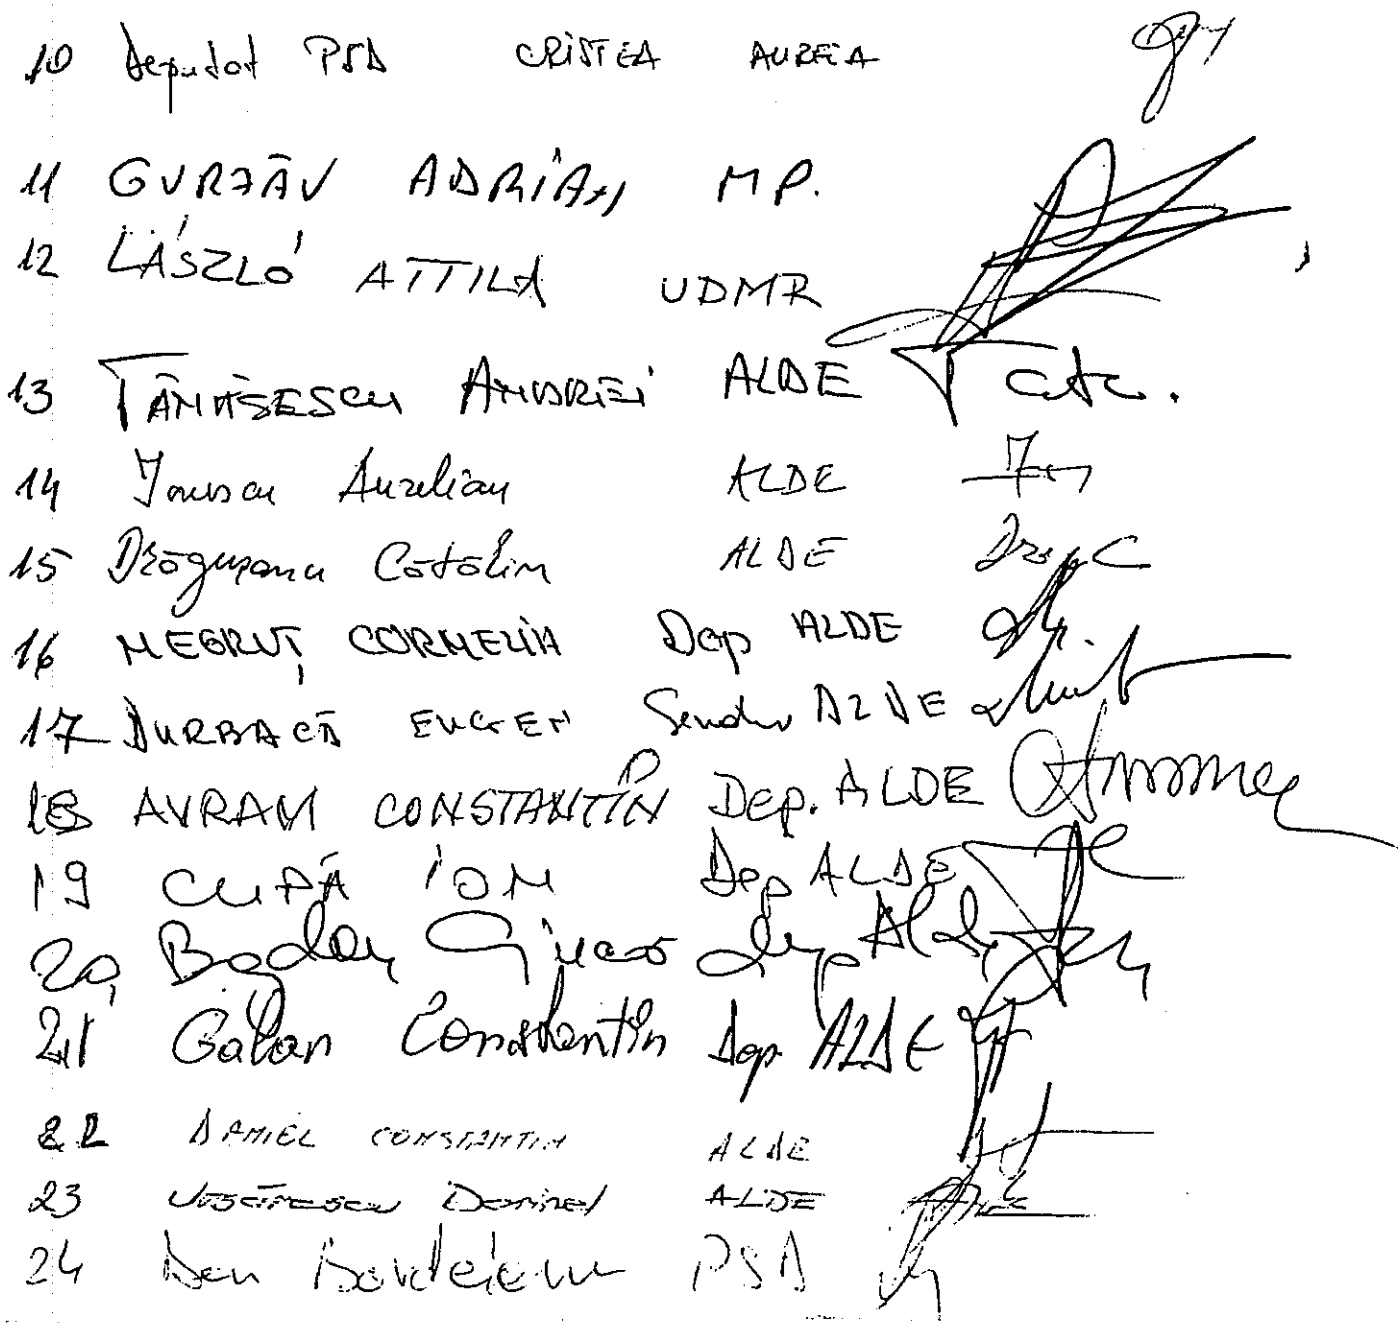 10 Deputat PSD CRISTEA AURELIA
11 GURZĂU ADRIAN MP.
12 LÁSZLÓ ATTILA UDMR
13 TĂNĂSESCU ANDREI ALDE
14 Ionescu Aurelian ALDE
15 Drăgușanu Cătălin ALDE
16 NEGRUȚ CORNELIA Dep ALDE
17 DURBACĂ EUGEN Senator ALDE
18 AVRAM CONSTANTIN Dep. ALDE
19 CUPĂ ION Dep ALDE
20, Bogdan Dep Alde
21 Galan Constantin Dep ALDE
22 DANIEL CONSTANTIN ALDE
23 ALDE
24 Dan PSD